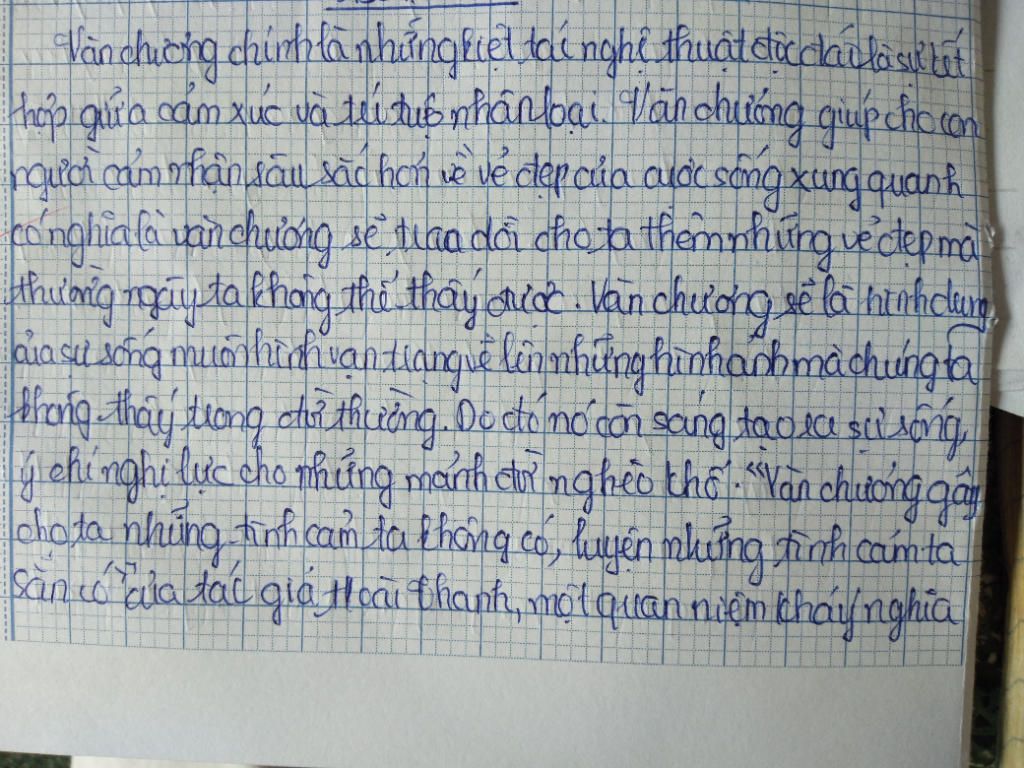 Văn chương chính là những kiệt tác nghệ thuật độc đáo là sự kết
hợp giữa cảm xúc và trí tuệ nhân loại. Văn chương giúp cho con
người cảm nhận sâu sắc hơn về vẻ đẹp của cuộc sống xung quanh
có nghĩa là văn chương sẽ trao dồi cho ta thêm những vẻ đẹp mà
thường ngày ta không thể thấy được. Văn chương sẽ là hình dung
của sự sống muôn hình vạn trạng vẽ lên những hình ảnh mà chúng ta
không thấy trong đời thường. Do đó nó còn sáng tạo ra sự sống,
ý chí nghị lực cho những mảnh đời nghèo khổ. "Văn chương gây
cho ta những tình cảm ta không có, luyện những tình cảm ta
sẵn có" của tác giả Hoài Thanh, một quan niệm nghĩa